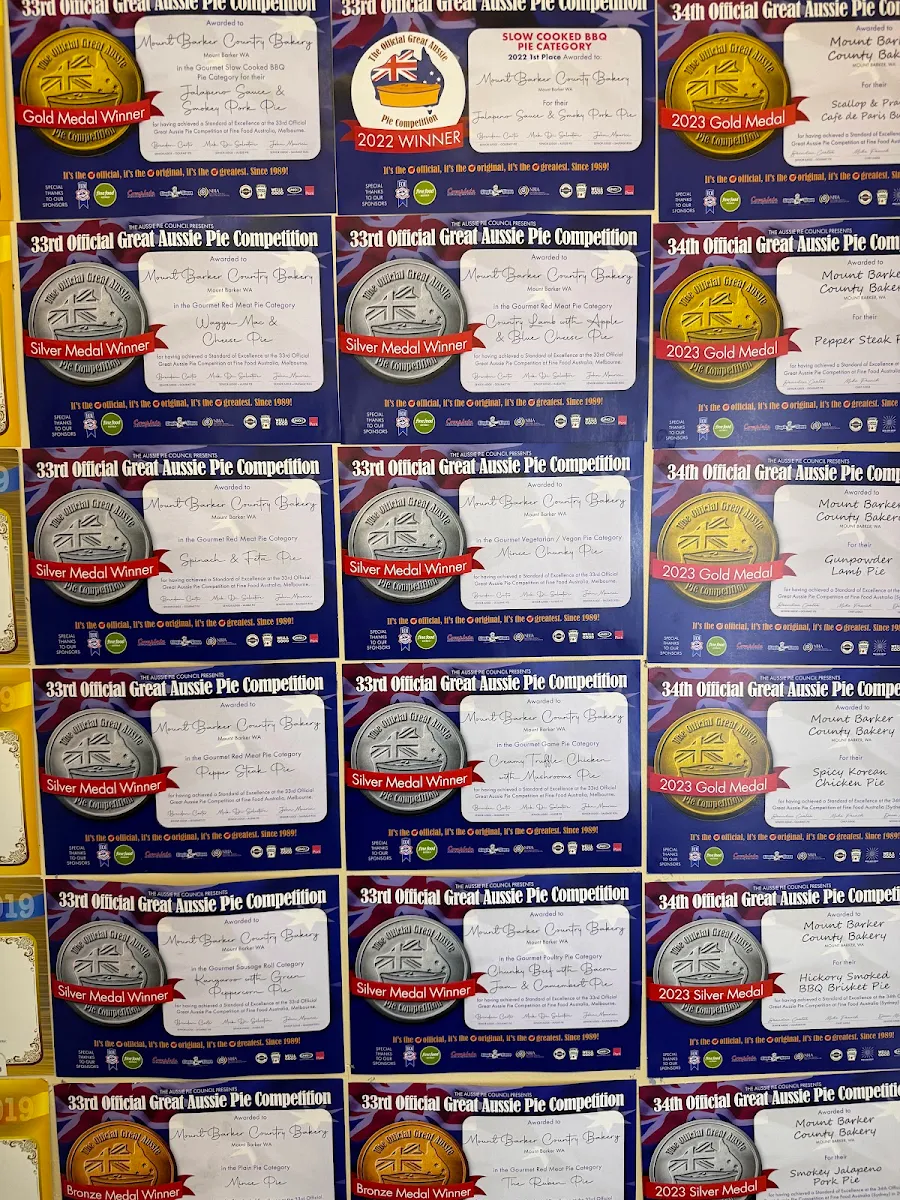 33rd Official Great Aussie Pie Competition
Awarded to
Mount Barker Country Bakery
Mount Barker WA
in the Gourmet Slow Cooked BBQ
Pie Category for their
Jalapeno Sauce &
Smokey Pork Pie
for having achieved a Standard of Excellence at the 33rd Official
Great Aussie Pie Competition at Fine Food Australia, Melbourne.
The Official Great Aussie
Gold Medal Winner
Pie Competition
It's the official, it's the original, it's the greatest. Since 1989!
SPECIAL
THANKS
TO OUR
SPONSORS
33rd Official Great Aussie Pie Competition
SLOW COOKED BBQ
PIE CATEGORY
2022 1st Place Awarded to:
Mount Barker Country Bakery
Mount Barker WA
For their
Jalapeno Sauce & Smokey Pork Pie
The Official Great Aussie
Pie Competition
2022 WINNER
It's the official, it's the original, it's the greatest. Since 1989!
SPECIAL
THANKS
TO OUR
SPONSORS
34th Official Great Aussie Pie Com
Awarded to
Mount Bar
County Bak
For their
Scallop & Pra
Cafe de Paris Bu
for having achieved a Standard of Excellence
Great Aussie Pie Competition at Fine Food Australia
2023 Gold Medal
Pie Competition
It's the official, it's the original, it's the greatest. Since 1989
SPECIAL
THANKS
TO OUR
SPONSORS
THE AUSSIE PIE COUNCIL PRESENTS
33rd Official Great Aussie Pie Competition
Awarded to
Mount Barker Country Bakery
Mount Barker WA
in the Gourmet Red Meat Pie Category
Wagyu Mac &
Cheese Pie
for having achieved a Standard of Excellence at the 33rd Official
Great Aussie Pie Competition at Fine Food Australia, Melbourne.
The Official Great Aussie
Silver Medal Winner
Pie Competition
It's the official, it's the original, it's the greatest. Since 1989!
SPECIAL
THANKS
TO OUR
SPONSORS
THE AUSSIE PIE COUNCIL PRESENTS
33rd Official Great Aussie Pie Competition
Awarded to
Mount Barker Country Bakery
Mount Barker WA
in the Gourmet Red Meat Pie Category
Country Lamb with Apple
& Blue Cheese Pie
for having achieved a Standard of Excellence at the 33rd Official
Great Aussie Pie Competition at Fine Food Australia, Melbourne.
The Official Great Aussie
Silver Medal Winner
Pie Competition
It's the official, it's the original, it's the greatest. Since 1989!
SPECIAL
THANKS
TO OUR
SPONSORS
THE AUSSIE PIE COUNCIL PRESENTS
34th Official Great Aussie Pie Com
Awarded to
Mount Barke
County Baker
MOUNT BARKER, WA
For their
Pepper Steak P
2023 Gold Medal
Pie Competition
It's the official, it's the original, it's the greatest. Since 1989
SPECIAL
THANKS
TO OUR
SPONSORS
THE AUSSIE PIE COUNCIL PRESENTS
33rd Official Great Aussie Pie Competition
Awarded to
Mount Barker Country Bakery
Mount Barker WA
in the Gourmet Red Meat Pie Category
Spinach & Feta Pie
for having achieved a Standard of Excellence at the 33rd Official
Great Aussie Pie Competition at Fine Food Australia, Melbourne.
The Official Great Aussie
Silver Medal Winner
Pie Competition
It's the official, it's the original, it's the greatest. Since 1989!
SPECIAL
THANKS
TO OUR
SPONSORS
THE AUSSIE PIE COUNCIL PRESENTS
33rd Official Great Aussie Pie Competition
Awarded to
Mount Barker Country Bakery
Mount Barker WA
in the Gourmet Vegetarian / Vegan Pie Category
Mince Chunky Pie
for having achieved a Standard of Excellence at the 33rd Official
Great Aussie Pie Competition at Fine Food Australia, Melbourne.
The Official Great Aussie
Silver Medal Winner
Pie Competition
It's the official, it's the original, it's the greatest. Since 1989!
SPECIAL
THANKS
TO OUR
SPONSORS
THE AUSSIE PIE COUNCIL PRESENTS
34th Official Great Aussie Pie Com
Awarded to
Mount Barke
County Baker
MOUNT BARKER, WA
For their
Gunpowder
Lamb Pie
2023 Gold Medal
Pie Competition
It's the official, it's the original, it's the greatest. Since 1989
SPECIAL
THANKS
TO OUR
SPONSORS
THE AUSSIE PIE COUNCIL PRESENTS
33rd Official Great Aussie Pie Competition
Awarded to
Mount Barker Country Bakery
Mount Barker WA
in the Gourmet Red Meat Pie Category
Pepper Steak Pie
for having achieved a Standard of Excellence at the 33rd Official
Great Aussie Pie Competition at Fine Food Australia, Melbourne.
The Official Great Aussie
Silver Medal Winner
Pie Competition
It's the official, it's the original, it's the greatest. Since 1989!
SPECIAL
THANKS
TO OUR
SPONSORS
THE AUSSIE PIE COUNCIL PRESENTS
33rd Official Great Aussie Pie Competition
Awarded to
Mount Barker Country Bakery
Mount Barker WA
in the Gourmet Game Pie Category
Creamy Truffle Chicken
with Mushrooms Pie
for having achieved a Standard of Excellence at the 33rd Official
Great Aussie Pie Competition at Fine Food Australia, Melbourne.
The Official Great Aussie
Silver Medal Winner
Pie Competition
It's the official, it's the original, it's the greatest. Since 1989!
SPECIAL
THANKS
TO OUR
SPONSORS
THE AUSSIE PIE COUNCIL PRESENTS
34th Official Great Aussie Pie Compe
Awarded to
Mount Barker
County Bakery
MOUNT BARKER, WA
For their
Spicy Korean
Chicken Pie
2023 Gold Medal
Pie Competition
It's the official, it's the original, it's the greatest. Since 1989!
SPECIAL
THANKS
TO OUR
SPONSORS
019
THE AUSSIE PIE COUNCIL PRESENTS
33rd Official Great Aussie Pie Competition
Awarded to
Mount Barker Country Bakery
Mount Barker WA
in the Gourmet Sausage Roll Category
Kangaroo with Green
Peppercorn Pie
for having achieved a Standard of Excellence at the 33rd Official
Great Aussie Pie Competition at Fine Food Australia, Melbourne.
The Official Great Aussie
Silver Medal Winner
Pie Competition
It's the official, it's the original, it's the greatest. Since 1989!
SPECIAL
THANKS
TO OUR
SPONSORS
THE AUSSIE PIE COUNCIL PRESENTS
33rd Official Great Aussie Pie Competition
Awarded to
Mount Barker Country Bakery
Mount Barker WA
in the Gourmet Poultry Pie Category
Chunky Beef with Bacon
Jam & Camembert Pie
for having achieved a Standard of Excellence at the 33rd Official
Great Aussie Pie Competition at Fine Food Australia, Melbourne.
The Official Great Aussie
Silver Medal Winner
Pie Competition
It's the official, it's the original, it's the greatest. Since 1989!
SPECIAL
THANKS
TO OUR
SPONSORS
THE AUSSIE PIE COUNCIL PRESENTS
34th Official Great Aussie Pie Compet
Awarded to
Mount Barker
County Bakery
MOUNT BARKER, WA
For their
Hickory Smoked
BBQ Brisket Pie
2023 Silver Medal
Pie Competition
It's the official, it's the original, it's the greatest. Since 1989!
SPECIAL
THANKS
TO OUR
SPONSORS
019
THE AUSSIE PIE COUNCIL PRESENTS
33rd Official Great Aussie Pie Competition
Awarded to
Mount Barker Country Bakery
Mount Barker WA
in the Plain Pie Category
Mince Pie
The Official Great Aussie
Bronze Medal Winner
THE AUSSIE PIE COUNCIL PRESENTS
33rd Official Great Aussie Pie Competition
Awarded to
Mount Barker Country Bakery
Mount Barker WA
in the Gourmet Red Meat Pie Category
The Ruben Pie
The Official Great Aussie
Bronze Medal Winner
THE AUSSIE PIE COUNCIL PRESENTS
34th Official Great Aussie Pie Competitio
Awarded to
Mount Barker
County Bakery
MOUNT BARKER, WA
For their
Smokey Jalapeno
Pork Pie
2023 Silver Medal